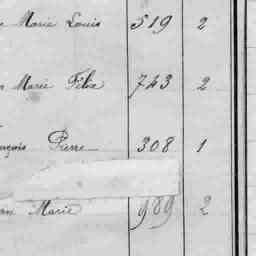 Marie Louis 519 2
Marie Félix 743 2
Pierre 308 1
Marie 989 2